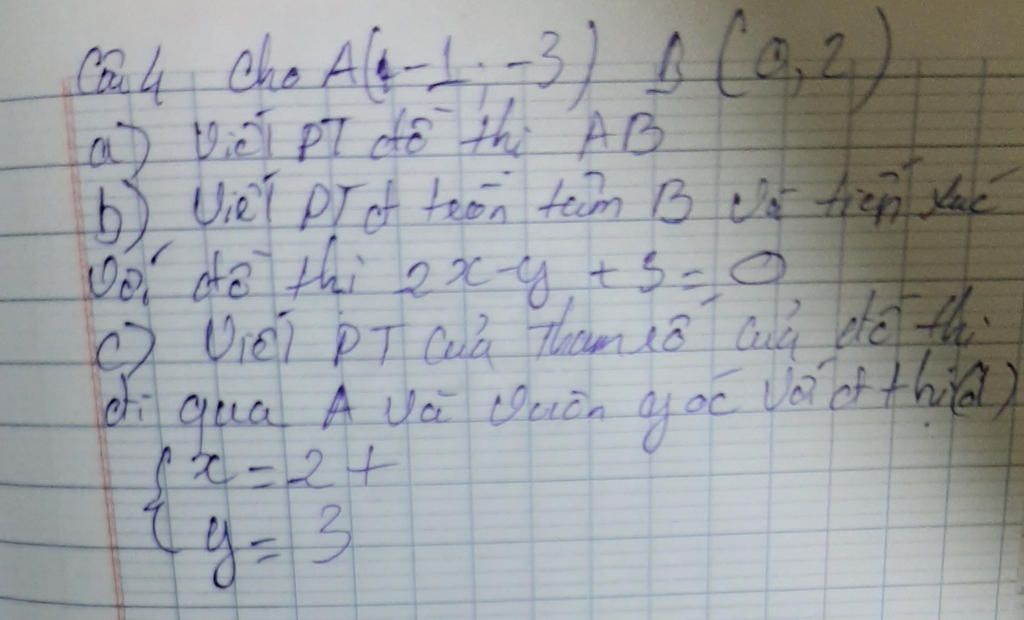 Câu 4 Cho A(-1; -3) B (0, 2)
a) Viết PT đồ thị AB
b) Viết PT đ tròn tâm B và tiếp xúc
với đồ thị 2x-y + 3 = 0
c) Viết PT của tham số của đồ thị
đi qua A và vuôn góc với đ thị(d)
{ x = 2 +
{ y = 3